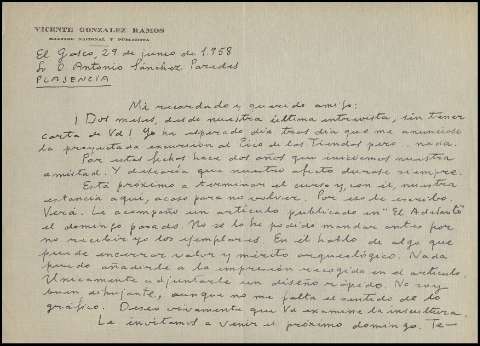 VICENTE GONZALEZ RAMOS
MAESTRO NACIONAL Y PUBLICISTA
El Gasco, 29 de junio de 1.958
Sr D Antonio Sánchez Paredes
PLASENCIA
Mi recordado y querido amigo:
¡ Dos meses, desde nuestra última entrevista, sin tener
carta de Vd! Yo he esperado día tras día que me anunciase
la proyectada excursión al Pico de los Tiendas pero.. nada.
Por estas fechas hace dos años que iniciamos nuestra
amistad. Y desearía que nuestro afecto durase siempre.
Está próximo a terminar el curso y, con él, nuestra
estancia aquí, acaso para no volver. Por eso le escribo.
Verá. Le acompaño un artículo publicado en "El Adelanto"
el domingo pasado. No se lo he podido mandar antes por
no recibir yo los ejemplares. En él hablo de algo que
puede encerrar valor y mérito arqueológico. Nada
puedo añadirle a la impresión recogida en el artículo.
Unicamente adjuntarle un diseño rápido. No soy
buen dibujante, aunque no me falta el sentido de lo
gráfico. Deseo vivamente que Vd examine la escultura.
Le invitamos a venir el próximo domingo. Te-